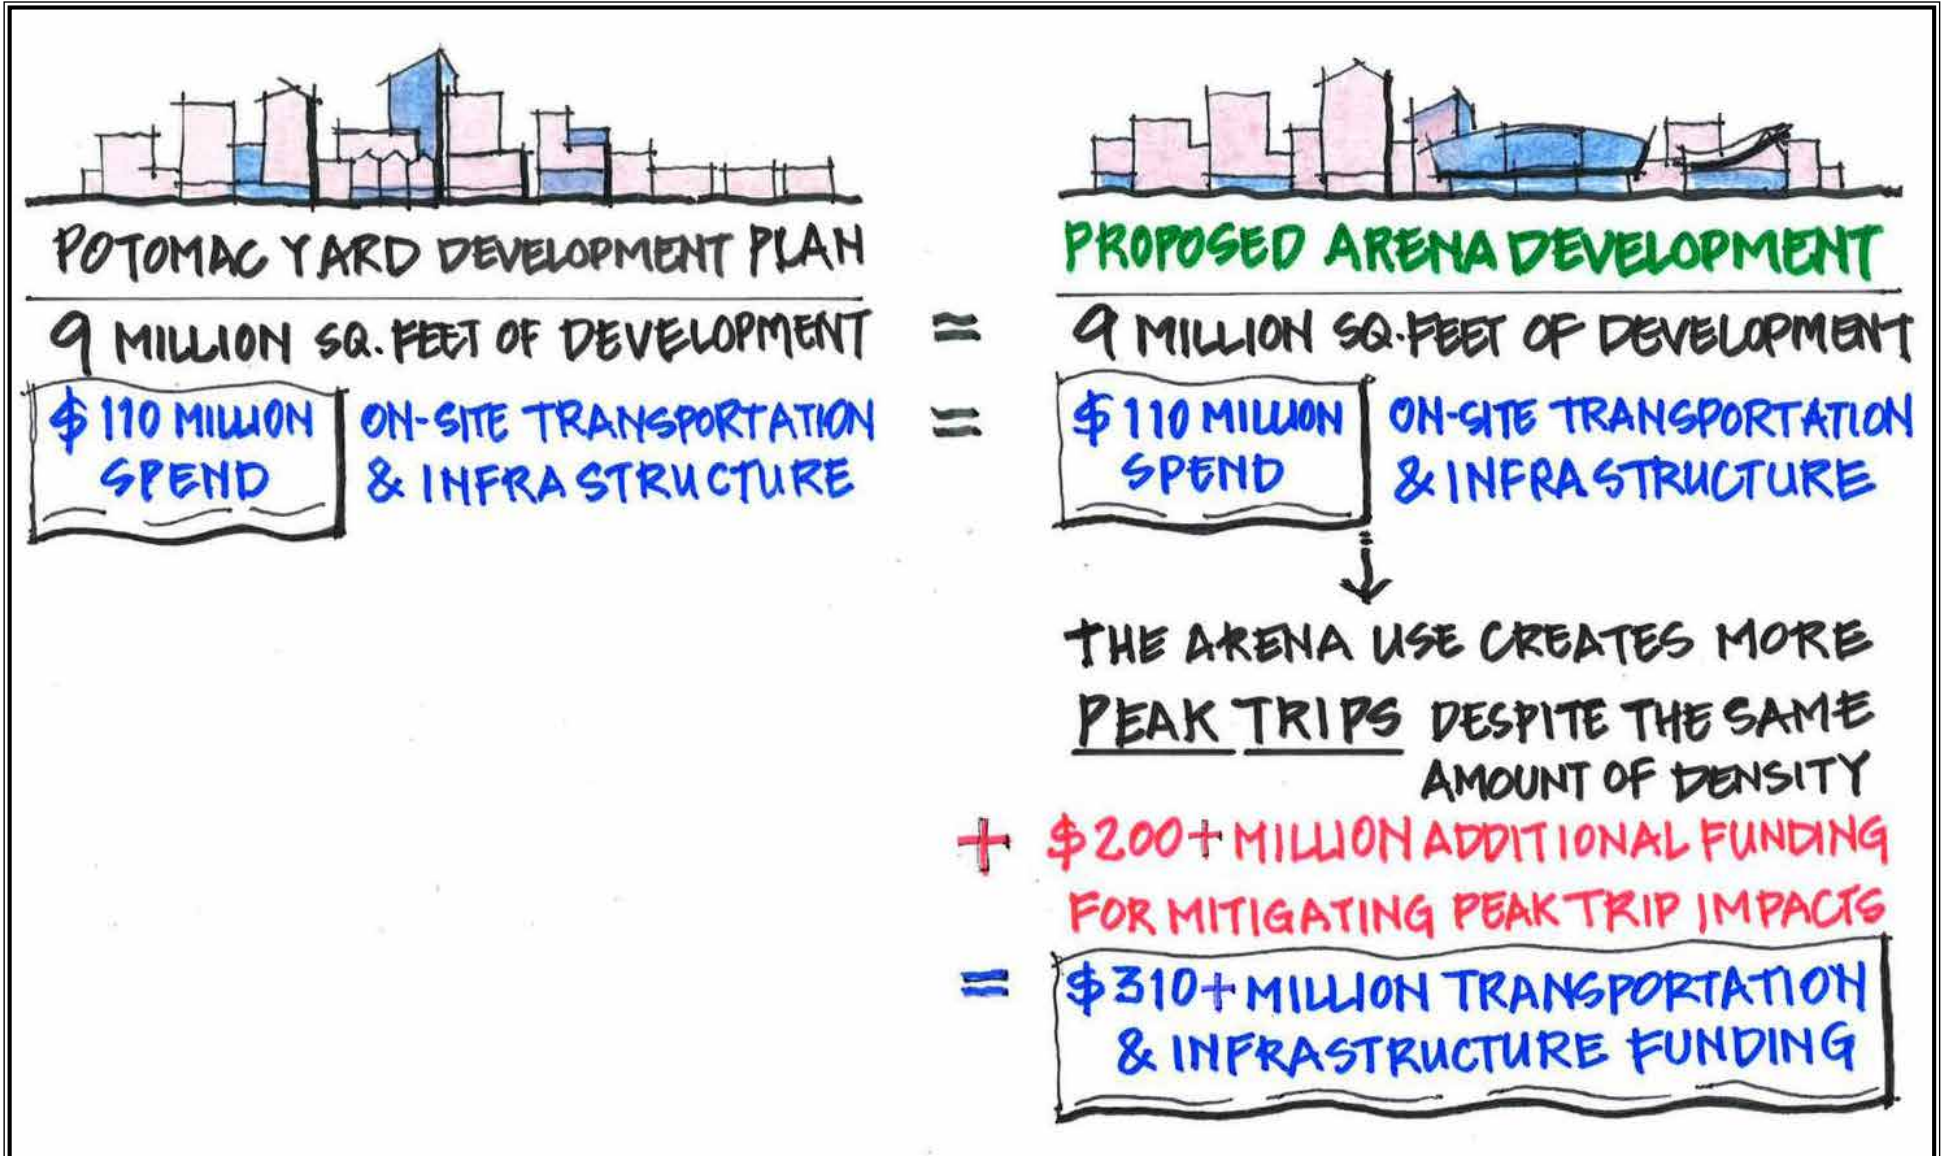 POTOMAC YARD DEVELOPMENT PLAN
9 MILLION SQ. FEET OF DEVELOPMENT
$110 MILLION
SPEND
ON-SITE TRANSPORTATION
& INFRASTRUCTURE
=
=
PROPOSED ARENA DEVELOPMENT
9 MILLION SQ. FEET OF DEVELOPMENT
$110 MILLION
SPEND
ON-SITE TRANSPORTATION
& INFRASTRUCTURE
THE ARENA USE CREATES MORE
PEAK TRIPS DESPITE THE SAME
AMOUNT OF DENSITY
+ $200+ MILLION ADDITIONAL FUNDING
FOR MITIGATING PEAK TRIP IMPACTS
= $310+ MILLION TRANSPORTATION
& INFRASTRUCTURE FUNDING